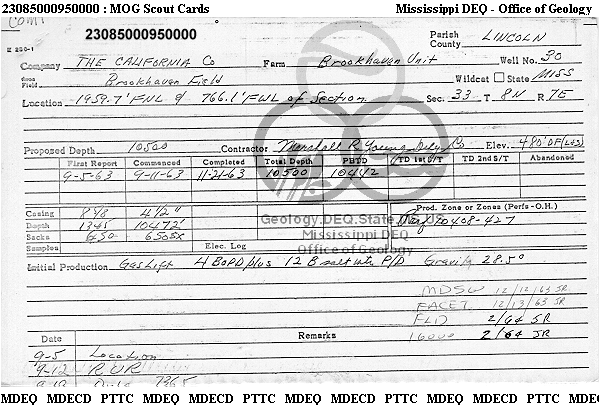 23085000950000 : MOG Scout Cards Mississippi DEQ - Office of Geology
CONF
23085000950000 Parish County LINCOLN
Company THE CALIFORNIA Co Farm Brookhaven Unit Well No. 30
Field Brookhaven Field Wildcat State MISS
Location 1959.7' FNL & 766.1' FWL of Section. Sec. 33 T. 8N R. 7E
Proposed Depth 10500 Contractor Marshall R Young Drlg Co Elev. 480' DF (Les)
First Report Commenced Completed Total Depth PBTD TD 1st S/T TD 2nd S/T Abandoned
9-5-63 9-11-63 11-21-63 10500 10442
Casing 8 5/8 4 1/2" Prod. Zone or Zones (Perfs - O.H.)
Depth 1345 10472' Geology.DEQ.State 10408-427
Sacks 650 650sx Mississippi DEQ
Samples Elec. Log Office of Geology
Initial Production Gas Lift 4 BOPD plus 12 B salt wtr P/D Gravity 28.5°
MDSW 12/12/63 SR
FACET 12/13/63 SR
FLD 2/64 SR
16000 2/64 SR
Date Remarks
9-5 Location
9-12 RUR
MDEQ MDECD PTTC MDEQ MDECD PTTC MDEQ MDECD PTTC MDEQ MDEC